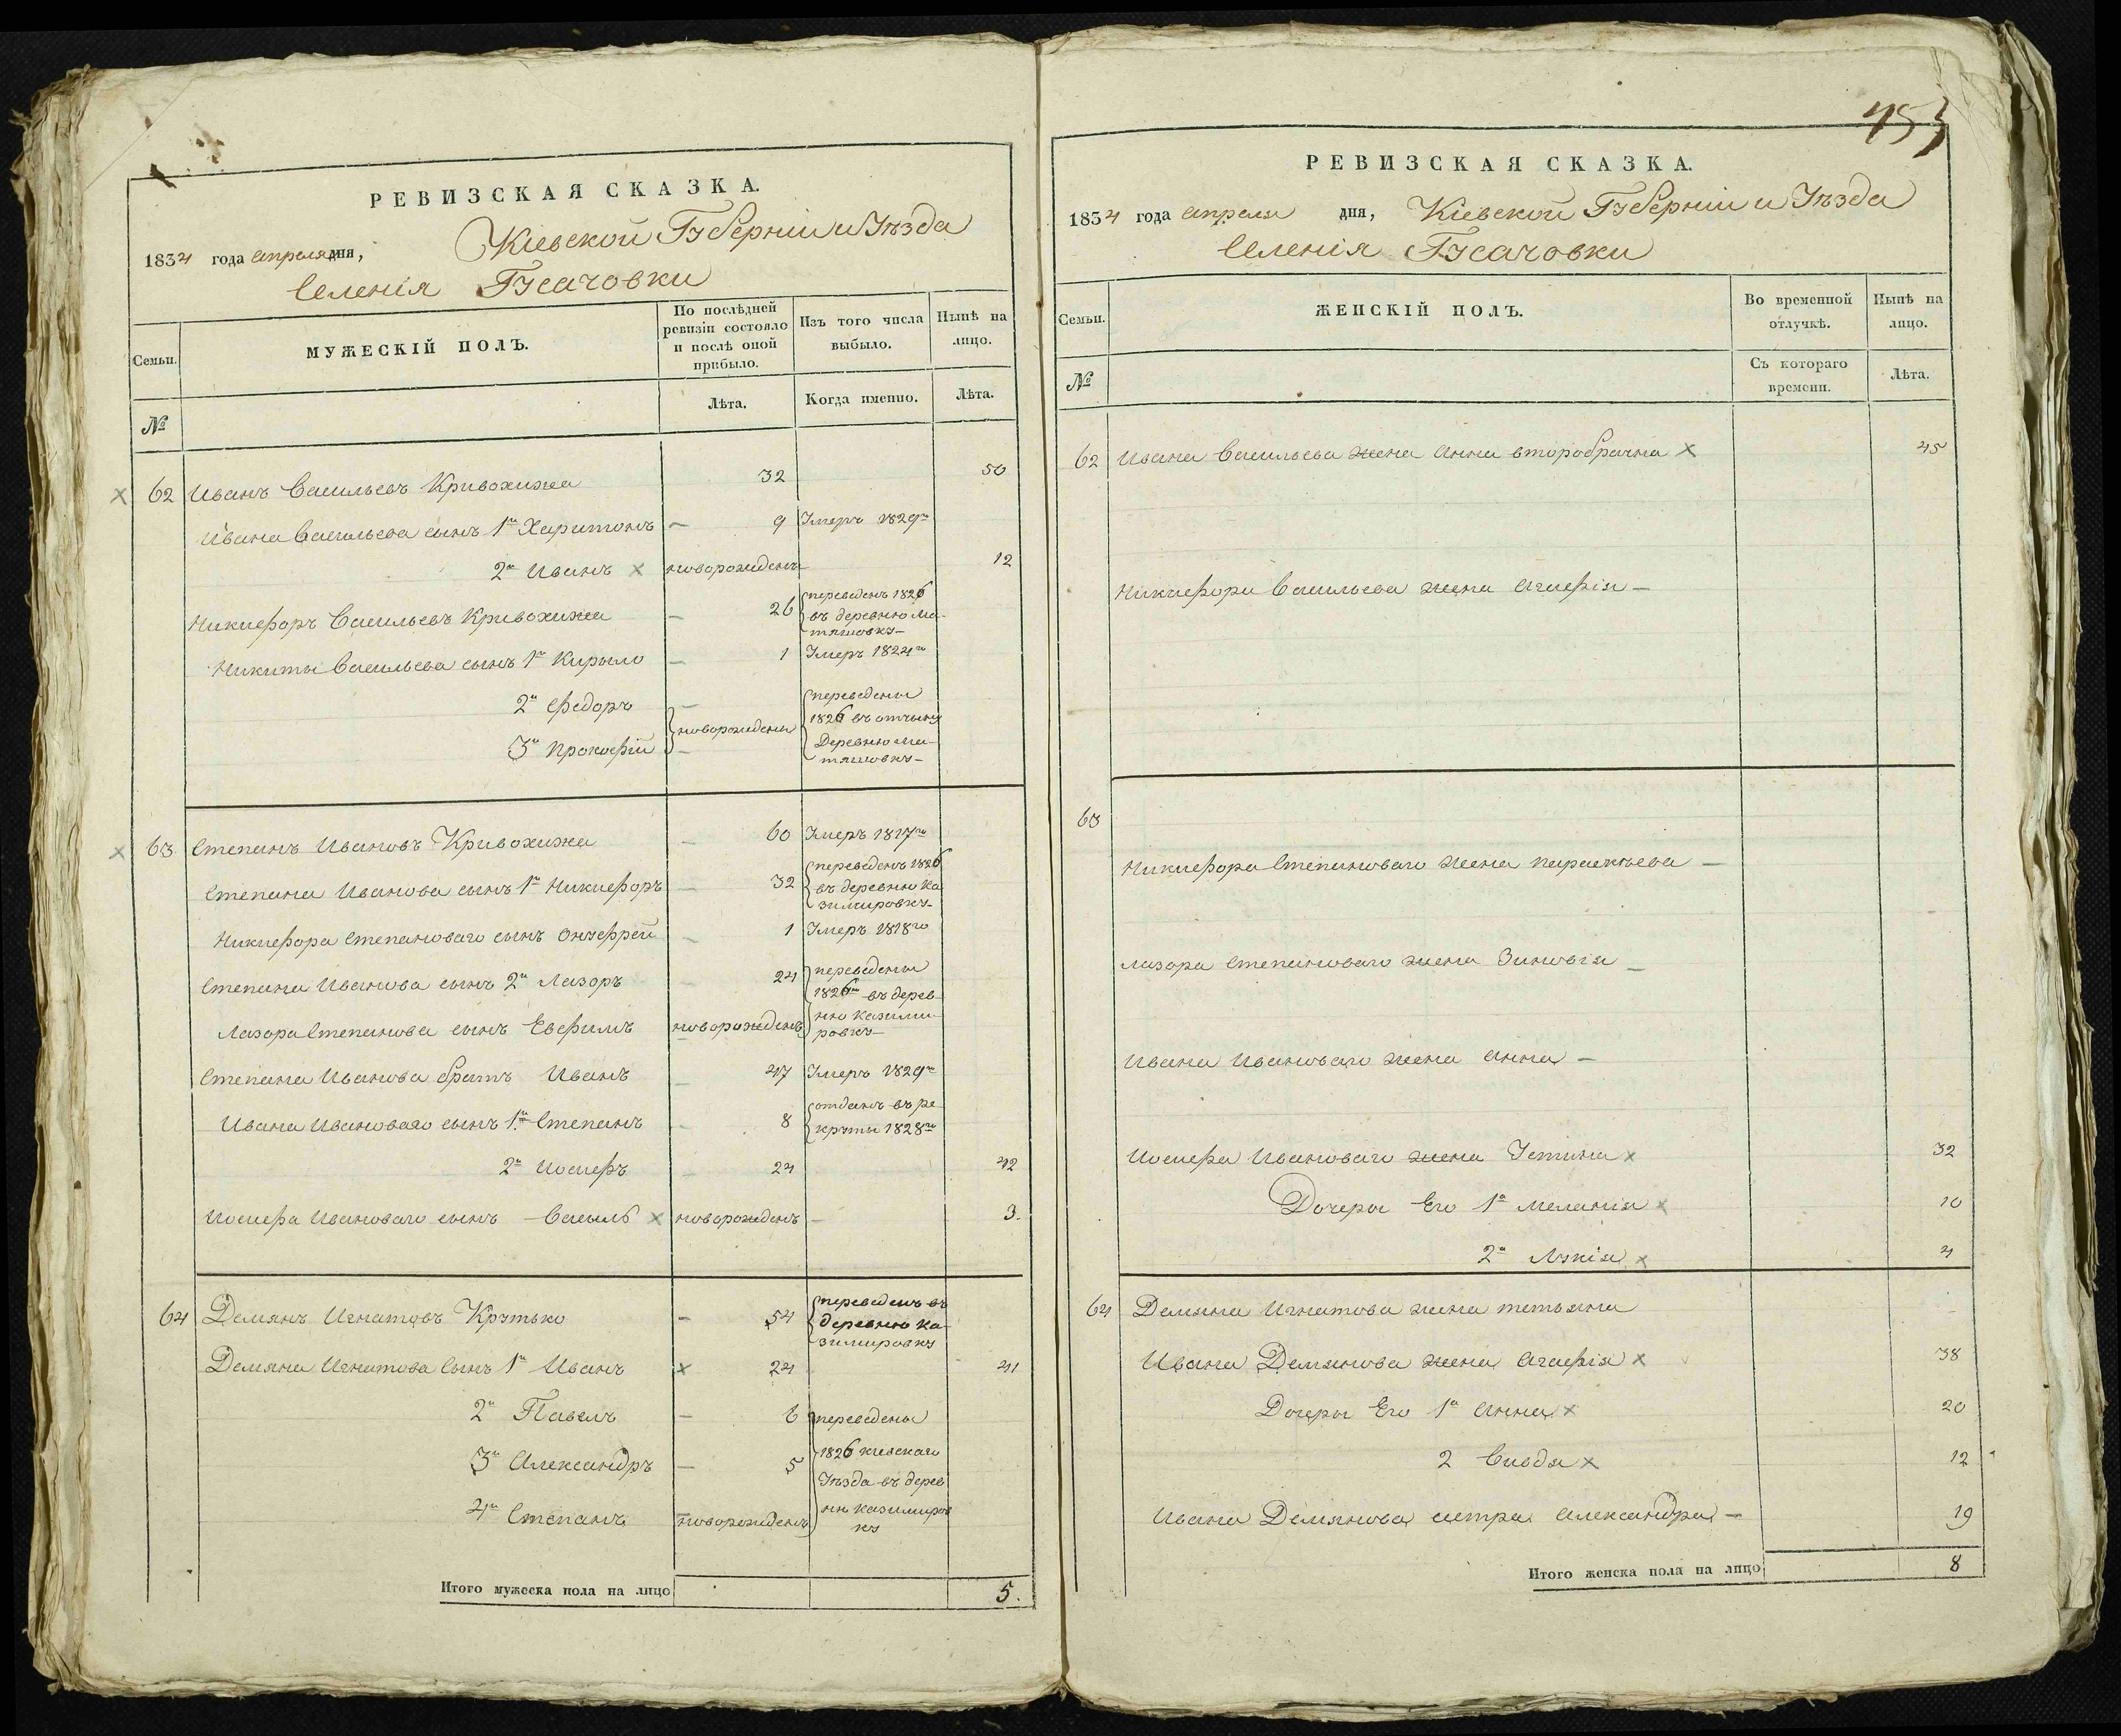 РЕВИЗСКАЯ СКАЗКА.
1834 года апреля дня, Кіевской Губерніи и Уѣзда
Селенія Гусачовки
Семьи.
МУЖЕСКІЙ ПОЛЪ.
По послѣдней ревизіи состояло и послѣ оной прибыло.
Изъ того числа выбыло.
Нынѣ на лицо.
№
Лѣта.
Когда именно.
Лѣта.
62 Иванъ Васильевъ Кривохижа 32 50
Ивана Васильева сынъ 1й Харитонъ – 9 Умеръ 1829го
2й Иванъ новорожденъ 12
Никифоръ Васильевъ Кривохижа – 26 переведенъ 1826
въ деревню Ма-
тяшовку –
Никиты Васильева сынъ 1й Кирыло – 1 Умеръ 1824го
2й Федоръ –
3й Прокофій –
новорожденны
переведены
1826 въ отчыну
Деревню Ма-
тяшовку –
63 Степанъ Ивановъ Кривохижа – 60 Умеръ 1817го
Степана Иванова сынъ 1й Никифоръ – 32 переведенъ 1826
въ деревню Ка
зимировку –
Никифора Степановаго сынъ Онуфрей – 1 Умеръ 1818го
Степана Иванова сынъ 2й Лазоръ – 24 переведены
1826го въ дерев
Лазора Степанова сынъ Евфимъ новорожденъ ню Казими-
ровку –
Степана Иванова братъ Иванъ – 47 Умеръ 1829го
Ивана Ивановаго сынъ 1й Степанъ – 8 отданъ въ ре
круты 1828го
2й Иосифъ – 24 42
Иосифа Ивановаго сынъ – Василь новорожденъ – 3.
64 Демянъ Игнатовъ Крутько – 54 переведенъ въ
деревню Ка-
зимировку
Демяна Игнатова Сынъ 1й Иванъ 24 41
2й Павелъ – 6 переведены
3й Александръ – 5 1826 Киевскаго
Уѣзда въ дерев
4й Степанъ новорожденъ ню Казимиров
ку
Итого мужеска пола на лицо 5.
453
РЕВИЗСКАЯ СКАЗКА.
1834 года апреля дня, Кіевской Губерніи и Уѣзда
Селенія Гусачовки
Семьи.
ЖЕНСКІЙ ПОЛЪ.
Во временной отлучкѣ.
Нынѣ на лицо.
№
Съ котораго времени.
Лѣта.
62 Ивана Васильева жена Анна второбрачна 45
Никифора Васильева жена Агафія –
63
Никифора Степановаго жена Параскѣева –
Лазора Степановаго жена Зиновія –
Ивана Ивановаго жена Анна –
Иосифа Ивановаго жена Устина 32
Дочеры Его 1я Меланія 10
2я Лукія 4
64 Демяна Игнатова жена Тетьяна
Ивана Демянова жена Агафія 38
Дочеры Его 1я Анна 20
2 Гивдя 12
Ивана Демянова систра Александра – 19
Итого женска пола на лицо 8